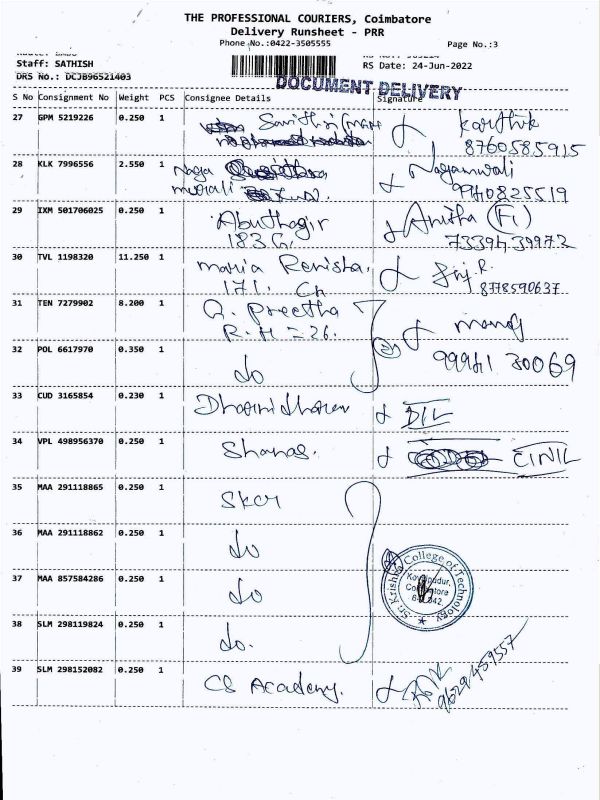 THE PROFESSIONAL COURIERS, Coimbatore
Delivery Runsheet - PRR
Phone No.:0422-3505555
Page No.:3
Staff: SATHISH
RS Date: 24-Jun-2022
DRS No.: DCJB96521403
DOCUMENT DELIVERY
S No Consignment No Weight PCS Consignee Details Signature
27 GPM 5219226 0.250 1 Karthik
8760585915
28 KLK 7996556 2.550 1 Naga
murali
9940825519
29 IXM 501706025 0.250 1 Abuthagir Anitha
183 G.
30 TVL 1198320 11.250 1 maria Renisha.
171. Ch
8778590637
31 TEN 7279902 8.200 1 Q. Preetha manoj
R.H = 26.
32 POL 6617970 0.350 1 do 99941 30069
33 CUD 3165854 0.230 1 Dharnidharan
34 VPL 498956370 0.250 1 Shanas.
35 MAA 291118865 0.250 1 Skcr
36 MAA 291118862 0.250 1 do
37 MAA 857584286 0.250 1 do
Sri Krishna College of Technology
Kovaipudur,
Coimbatore
38 SLM 298119824 0.250 1 do.
39 SLM 298152082 0.250 1 CS Academy.
9629459557